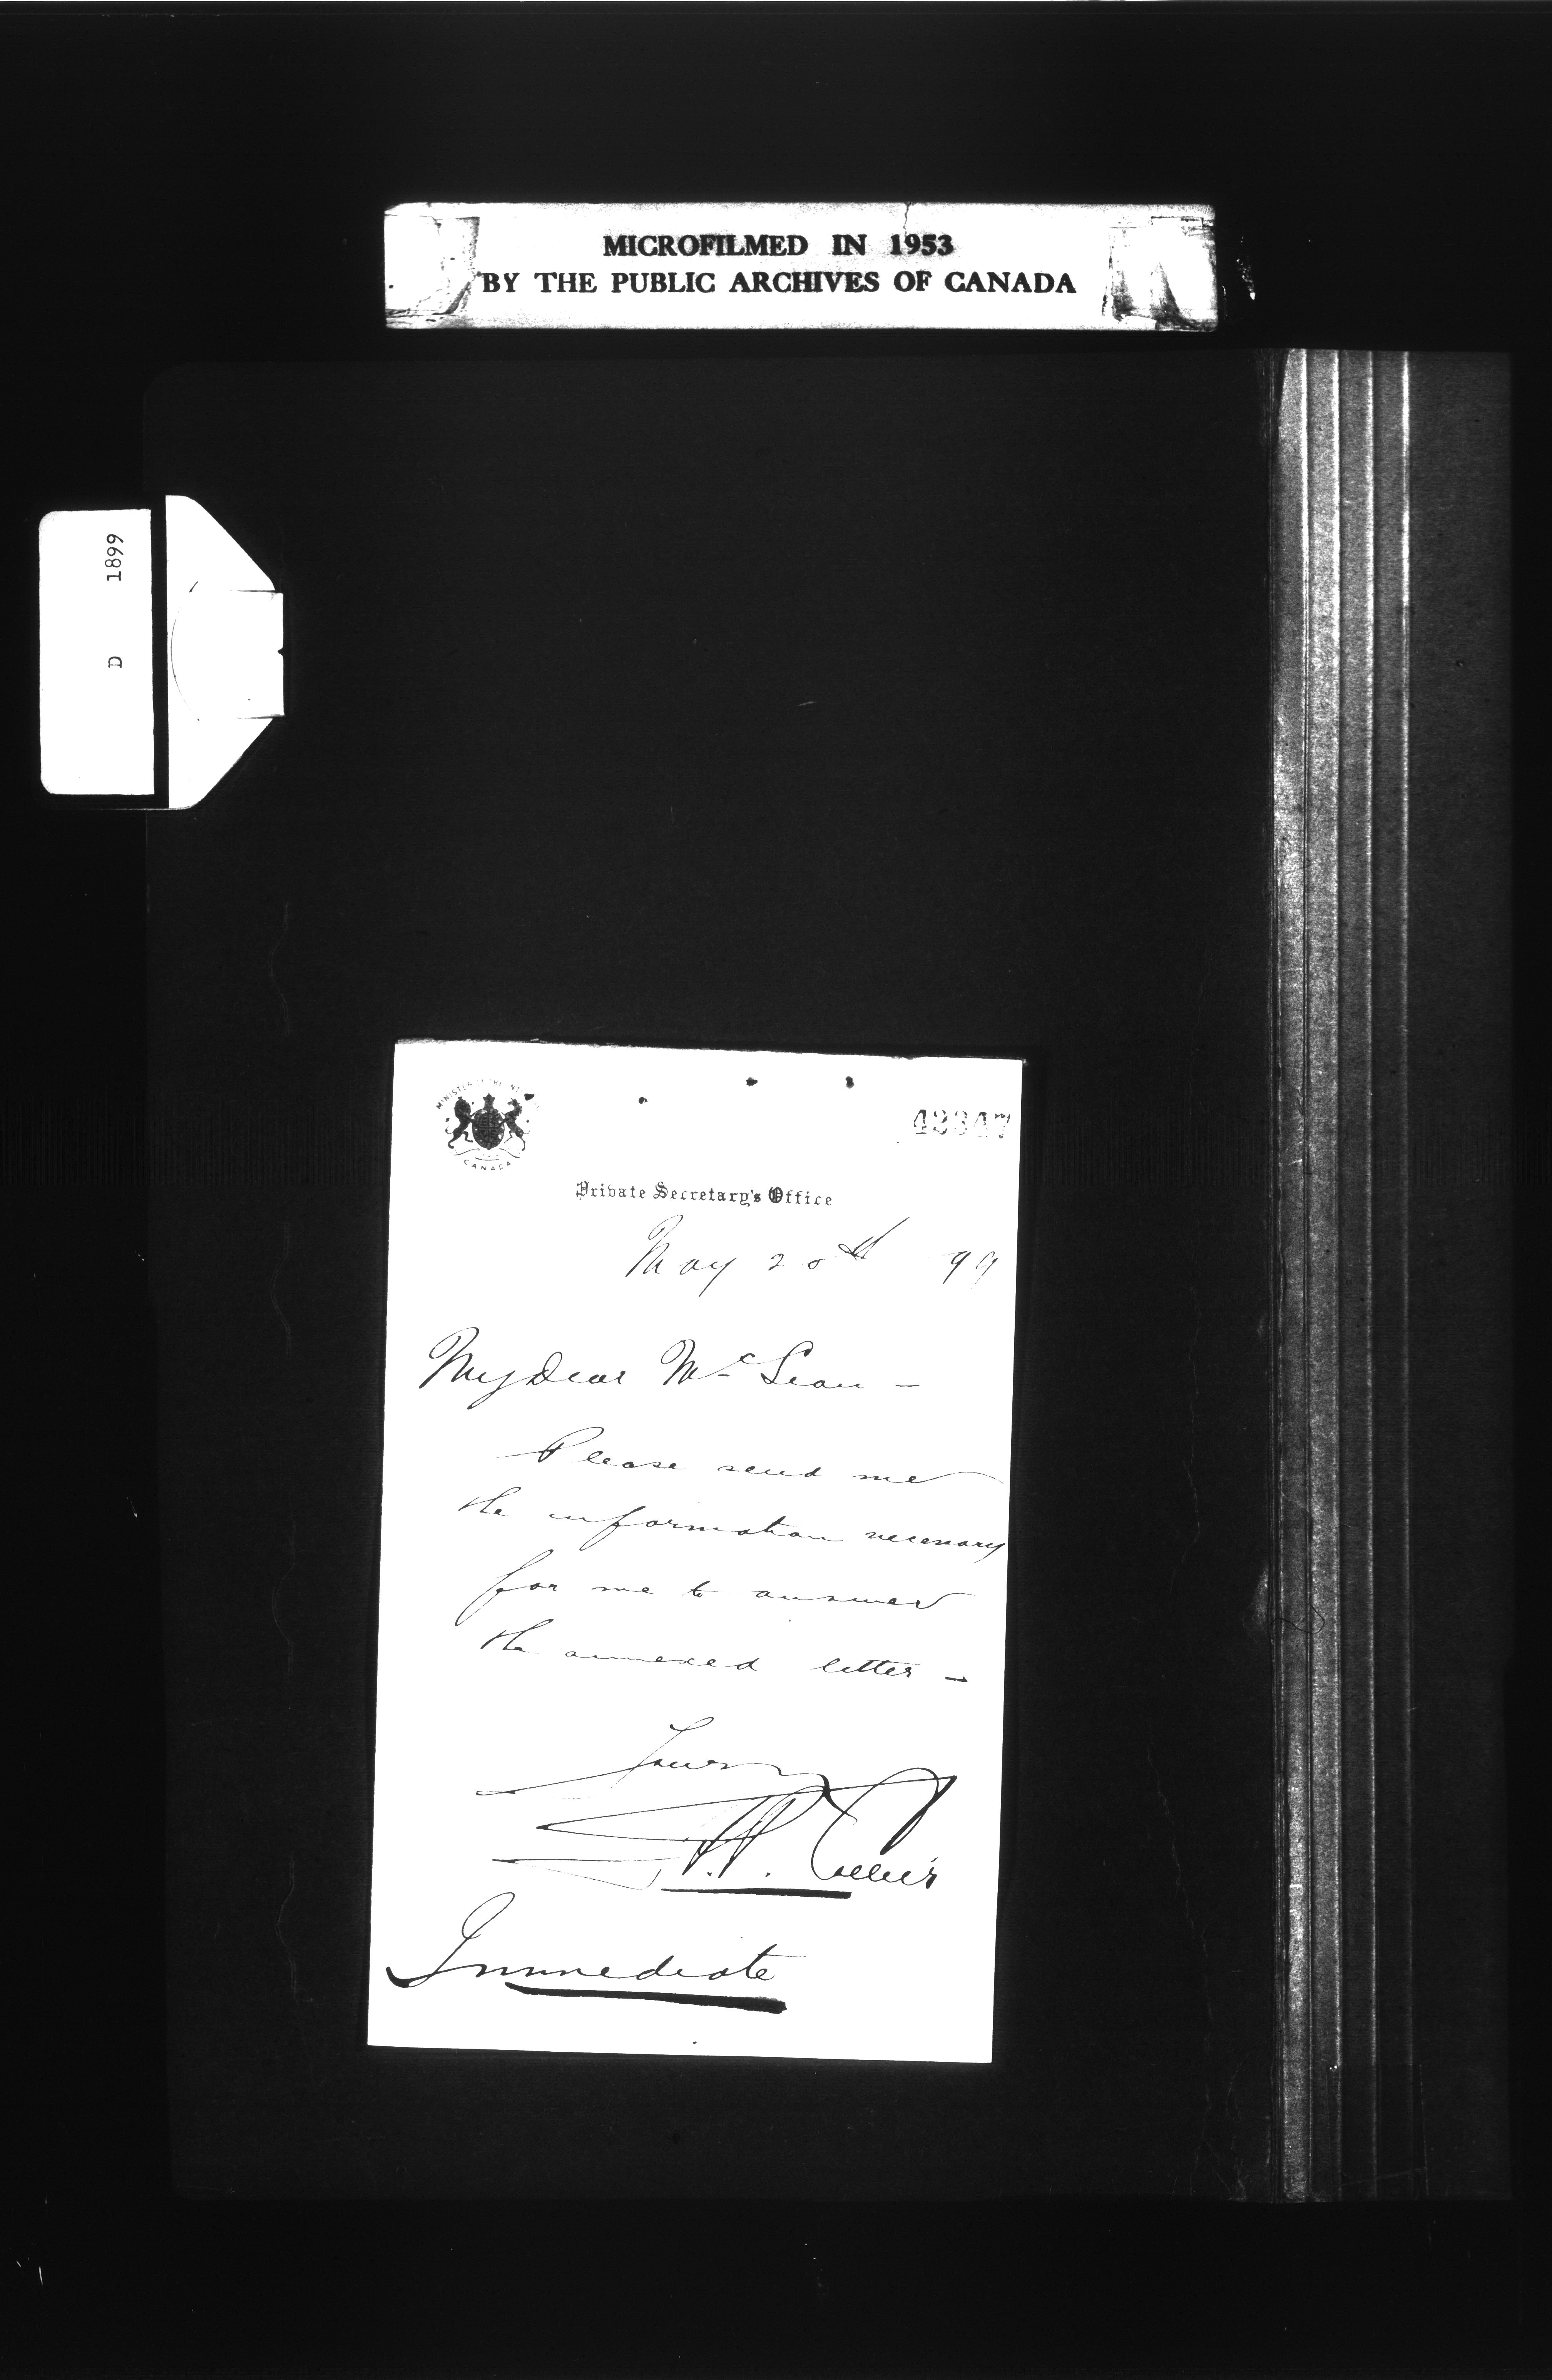 MICROFILMED IN 1953
BY THE PUBLIC ARCHIVES OF CANADA
D 1899
MINISTER
CANADA
42347
Private Secretary's Office
May 20th 99
My Dear McLean —
Please send me
the information necessary
for me to answer
the annexed letter —
Yours
Collier
Immediate